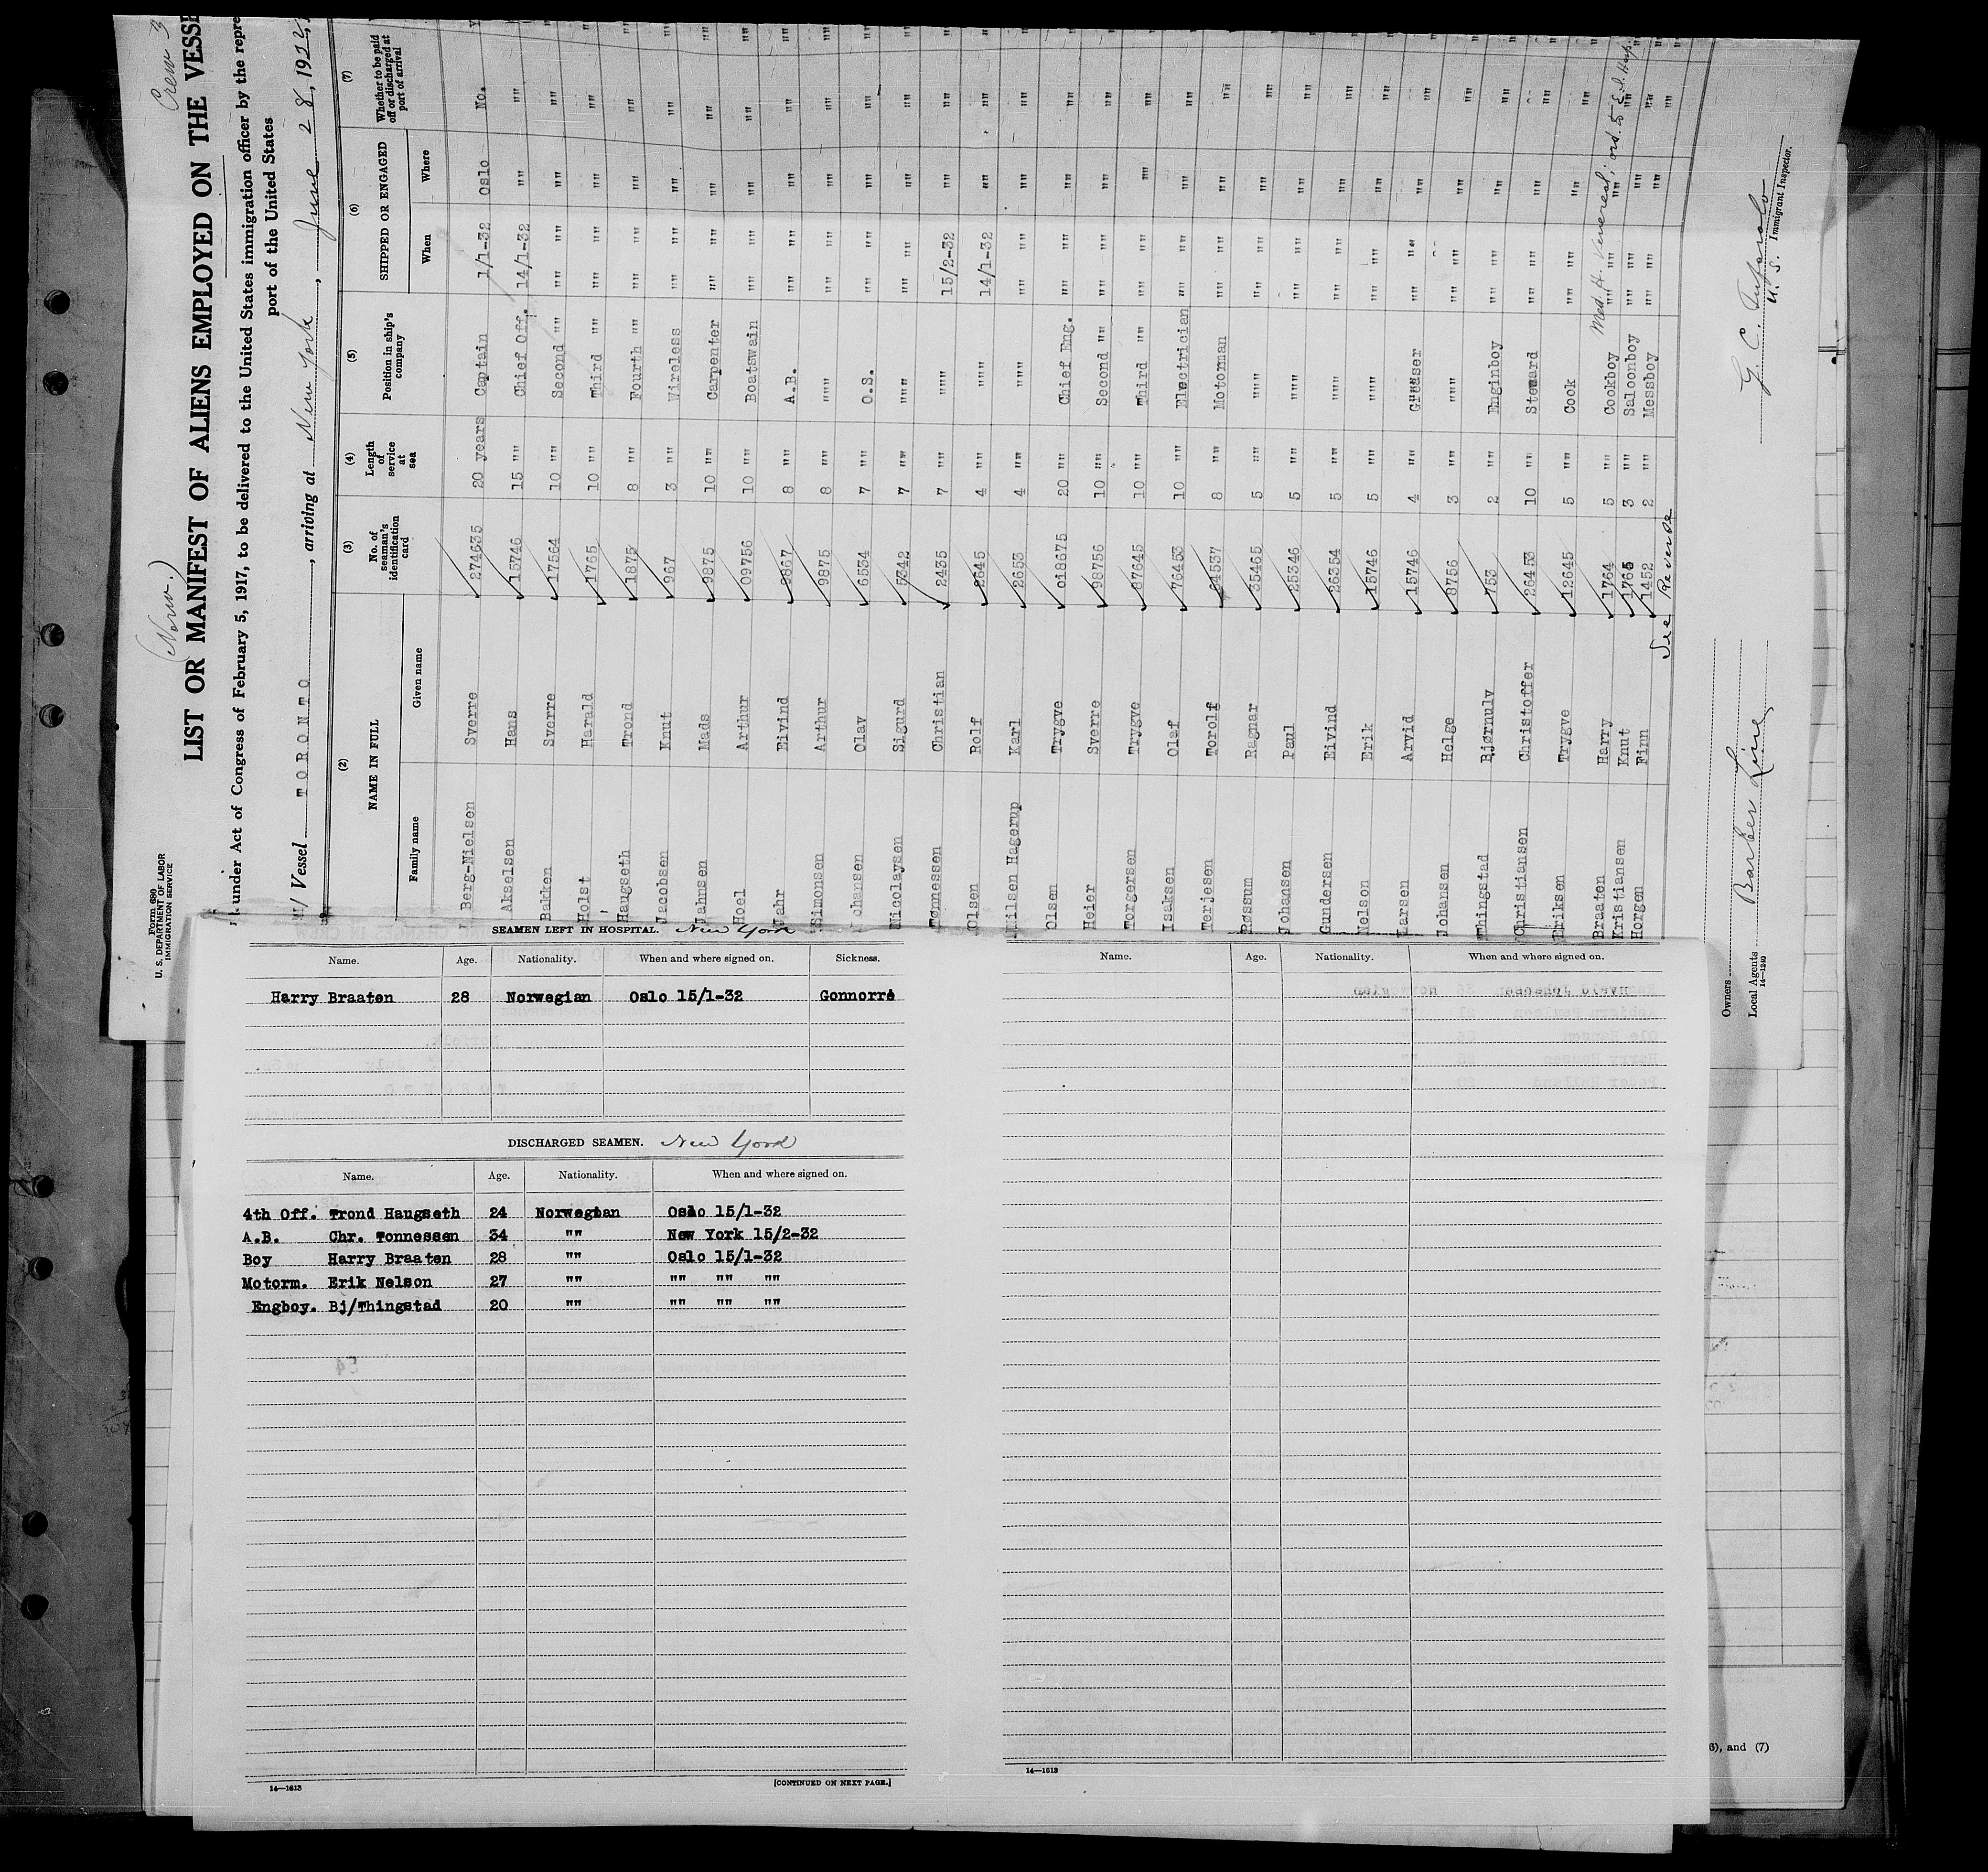 (Norw.)
Crew 3
Form 680
U. S. DEPARTMENT OF LABOR
IMMIGRATION SERVICE
LIST OR MANIFEST OF ALIENS EMPLOYED ON THE VESSE
under Act of Congress of February 5, 1917, to be delivered to the United States immigration officer by the repre
port of the United States
M/ Vessel TORONTO, arriving at New York, June 28, 1932,
(2) (3) (4) (5) (6) (7)
NAME IN FULL No. of seaman's identification card Length of service at sea Position in ship's company SHIPPED OR ENGAGED Whether to be paid off or discharged at port of arrival
Family name Given name When Where
Berg-Nielsen Sverre 274635 20 years Captain 1/1-32 Oslo No.
Akselsen Hans 15746 15 "" Chief Off. 14/1-32 "" ""
Bakken Sverre 17564 10 "" Second "" "" "" "" ""
Holst Harald 1765 10 "" Third "" "" "" "" ""
Haugseth Trond 1875 8 "" Fourth "" "" "" "" ""
Jacobsen Knut 967 3 "" Wireless "" "" "" ""
Jahnsen Mads 9875 10 "" Carpenter "" "" "" ""
Hoel Arthur 09756 10 "" Boatswain "" "" "" ""
Jahr Eivind 9867 8 "" A.B. "" "" "" ""
Simonsen Arthur 9875 8 "" "" "" "" "" ""
Johansen Olav 6534 7 "" O.S. "" "" "" ""
Nicolaysen Sigurd 5342 7 "" "" "" "" "" ""
Tønnessen Christian 2435 7 "" "" 15/2-32 "" ""
Olsen Rolf 8645 4 "" "" 14/1-32 "" ""
Nilsen Hagerup Karl 2653 4 "" "" "" "" "" ""
Olsen Trygve 018675 20 "" Chief Eng. "" "" "" ""
Heier Sverre 98756 10 "" Second "" "" "" "" ""
Torgersen Trygve 87645 10 "" Third "" "" "" "" ""
Isaksen Olaf 76453 10 "" Electrician "" "" "" ""
Terjesen Torolf 84537 8 "" Motorman "" "" "" ""
Røssum Ragnar 35465 5 "" "" "" "" "" ""
Johansen Paul 25346 5 "" "" "" "" "" ""
Gundersen Eivind 26354 5 "" "" "" "" "" ""
Nelson Erik 15746 5 "" "" "" "" "" ""
Larsen Arvid 15746 4 "" Greaser "" "" "" ""
Johansen Helge 8756 3 "" "" "" "" "" ""
Thingstad Bjørnulv 753 2 "" Enginboy "" "" "" ""
Christiansen Christoffer 26453 10 "" Steward "" "" "" ""
Eriksen Trygve 12645 5 "" Cook "" "" "" ""
Med. H. Venereal; ord. to E.I. Hosp.
Braaten Harry 1764 5 "" Cookboy "" "" "" ""
Kristiansen Knut 1765 3 "" Saloonboy "" "" "" ""
Horgen Finn 1452 2 "" Messboy "" "" "" ""
See Reverse
Owners
Local Agents Barber Line
14—1240
U. S. Immigrant Inspector.
SEAMEN LEFT IN HOSPITAL. New York
Name. Age. Nationality. When and where signed on. Sickness.
Harry Braaten 28 Norwegian Oslo 15/1-32 Gonnorré
DISCHARGED SEAMEN. New York
Name. Age. Nationality. When and where signed on.
4th Off. Trond Haugseth 24 Norwegian Oslo 15/1-32
A.B. Chr. Tonnessen 34 "" New York 15/2-32
Boy Harry Braaten 28 "" Oslo 15/1-32
Motorm. Erik Nelson 27 "" "" "" ""
Engboy. Bj/Thingstad 20 "" "" "" ""
14—1613
[CONTINUED ON NEXT PAGE.]
Name. Age. Nationality. When and where signed on.
14—1613
6), and (7)